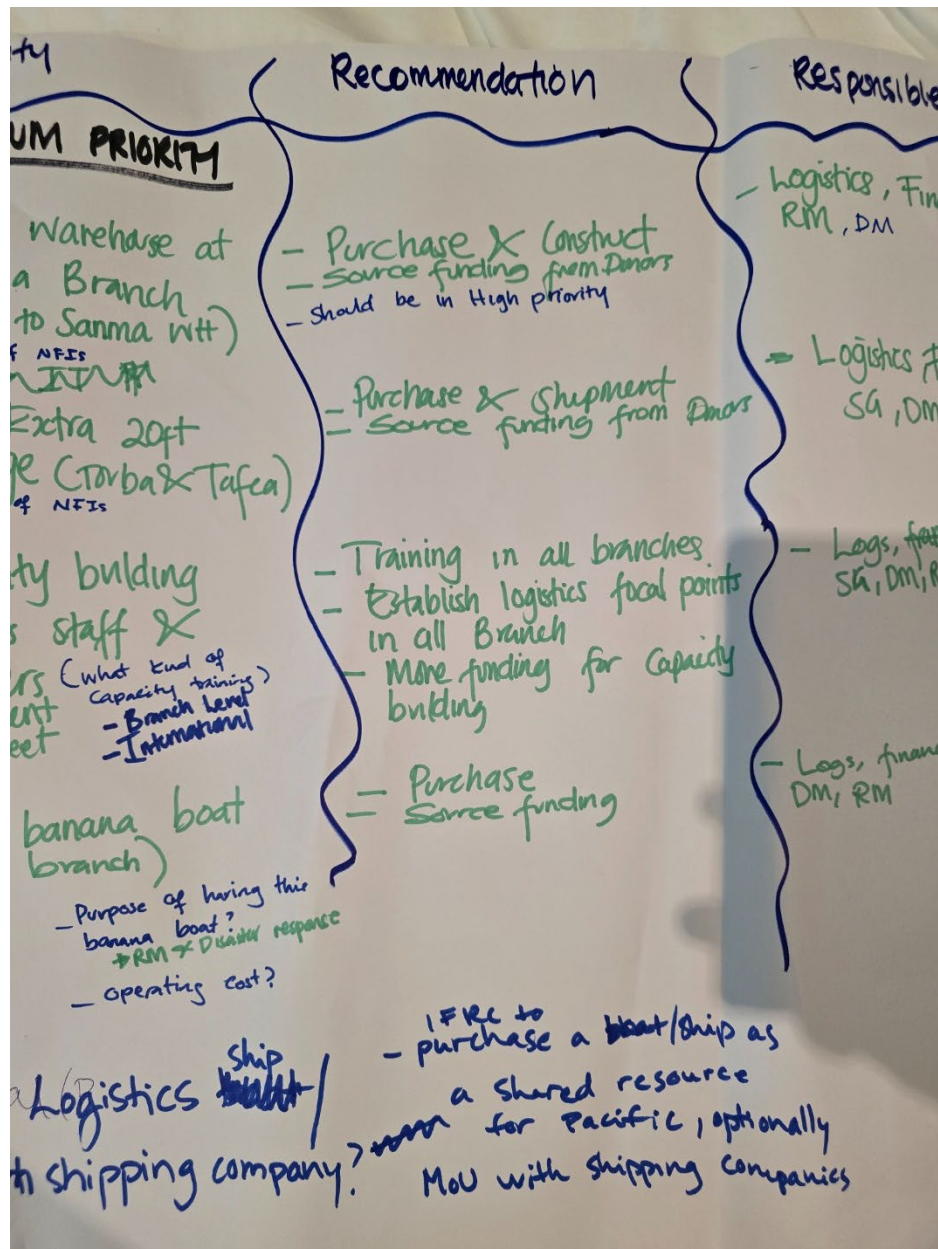 ity
Recommendation
Responsible
UM PRIORITY
warehouse at
a Branch
to Sanma WH)
of NFIs
Extra 20ft
ge (Torba & Tafea)
of NFIs
ty building
s staff &
rs (what kind of
capacity training)
ent - Branch Level
eet - International
banana boat
branch)
- Purpose of having this
banana boat?
→ RM & Disaster response
- operating cost?
Logistics ship /
n shipping company?
- Purchase & Construct
- Source funding from Donors
- should be in High priority
- Purchase & Shupment
- Source funding from Donors
- Training in all branches
- Establish logistics focal points
in all Branch
- More funding for Capacity
building
- Purchase
- Source funding
IFRC to
- purchase a boat/ship as
a shared resource
for Pacific, optionally
MoU with shipping companies
- Logistics, Fin
RM, DM
- Logistics
SG, DM
- Logs,
SG, DM, R
- Logs, finan
DM, RM